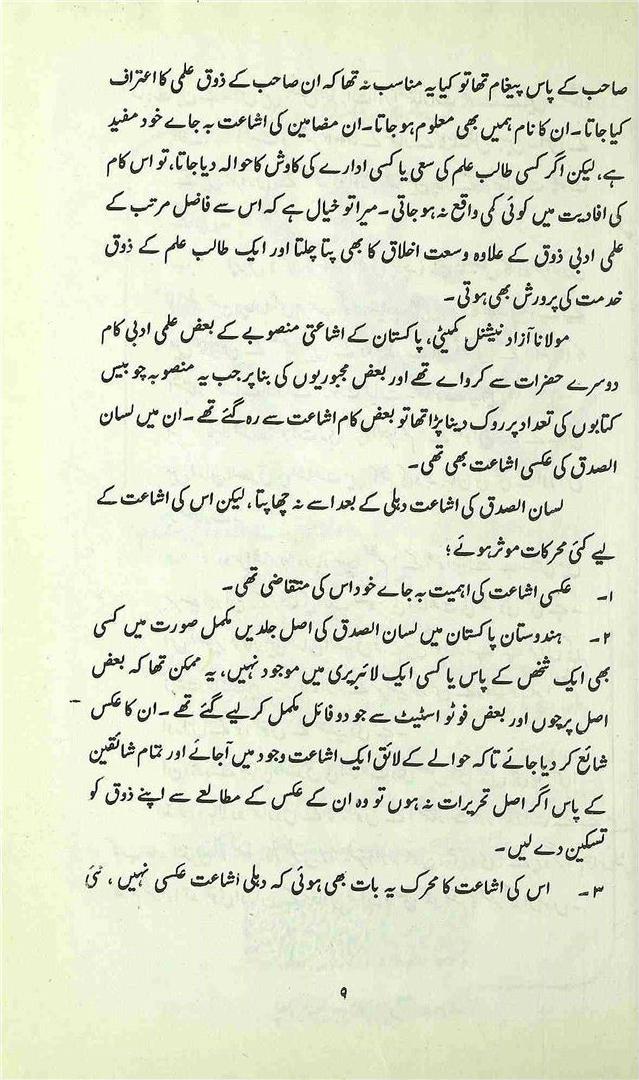 صاحب کے پاس پیغام تھا تو کیا یہ مناسب نہ تھا کہ ان صاحب کے ذوق علمی کا اعتراف
کیا جاتا۔ ان کا نام ہمیں بھی معلوم ہو جاتا۔ ان مضامین کی اشاعت بہ جاے خود مفید
ہے، لیکن اگر کسی طالب علم کی سعی یا کسی ادارے کی کاوش کا حوالہ دیا جاتا، تو اس کام
کی افادیت میں کوئی کمی واقع نہ ہو جاتی۔ میرا تو خیال ہے کہ اس سے فاضل مرتب کے
علمی ادبی ذوق کے علاوہ وسعت اخلاق کا بھی پتا چلتا اور ایک طالب علم کے ذوق
خدمت کی پرورش بھی ہوتی۔
مولانا آزاد نیشنل کمیٹی، پاکستان کے اشاعتی منصوبے کے بعض علمی ادبی کام
دوسرے حضرات سے کرواے تھے اور بعض مجبوریوں کی بنا پر جب یہ منصوبہ چوبیس
کتابوں کی تعداد پر روک دینا پڑا تھا تو بعض کام اشاعت سے رہ گئے تھے۔ ان میں لسان
الصدق کی عکسی اشاعت بھی تھی۔
لسان الصدق کی اشاعت دہلی کے بعد اسے نہ چھاپتا، لیکن اس کی اشاعت کے
لیے کئی محرکات موثر ہوئے؛
۱۔ عکسی اشاعت کی اہمیت بہ جاے خود اس کی متقاضی تھی۔
۲۔ ہندوستان پاکستان میں لسان الصدق کی اصل جلدیں مکمل صورت میں کسی
بھی ایک شخص کے پاس یا کسی ایک لائبریری میں موجود نہیں، یہ ممکن تھا کہ بعض
اصل پرچوں اور بعض فوٹو اسٹیٹ سے جو دو فائل مکمل کر لیے گئے تھے۔ ان کا عکس
شائع کر دیا جائے تاکہ حوالے کے لائق ایک اشاعت وجود میں آ جائے اور تمام شائقین
کے پاس اگر اصل تحریرات نہ ہوں تو وہ ان کے عکس کے مطالعے سے اپنے ذوق کو
تسکین دے لیں۔
۳۔ اس کی اشاعت کا محرک یہ بات بھی ہوئی کہ دہلی اشاعت عکسی نہیں، نئی
۹